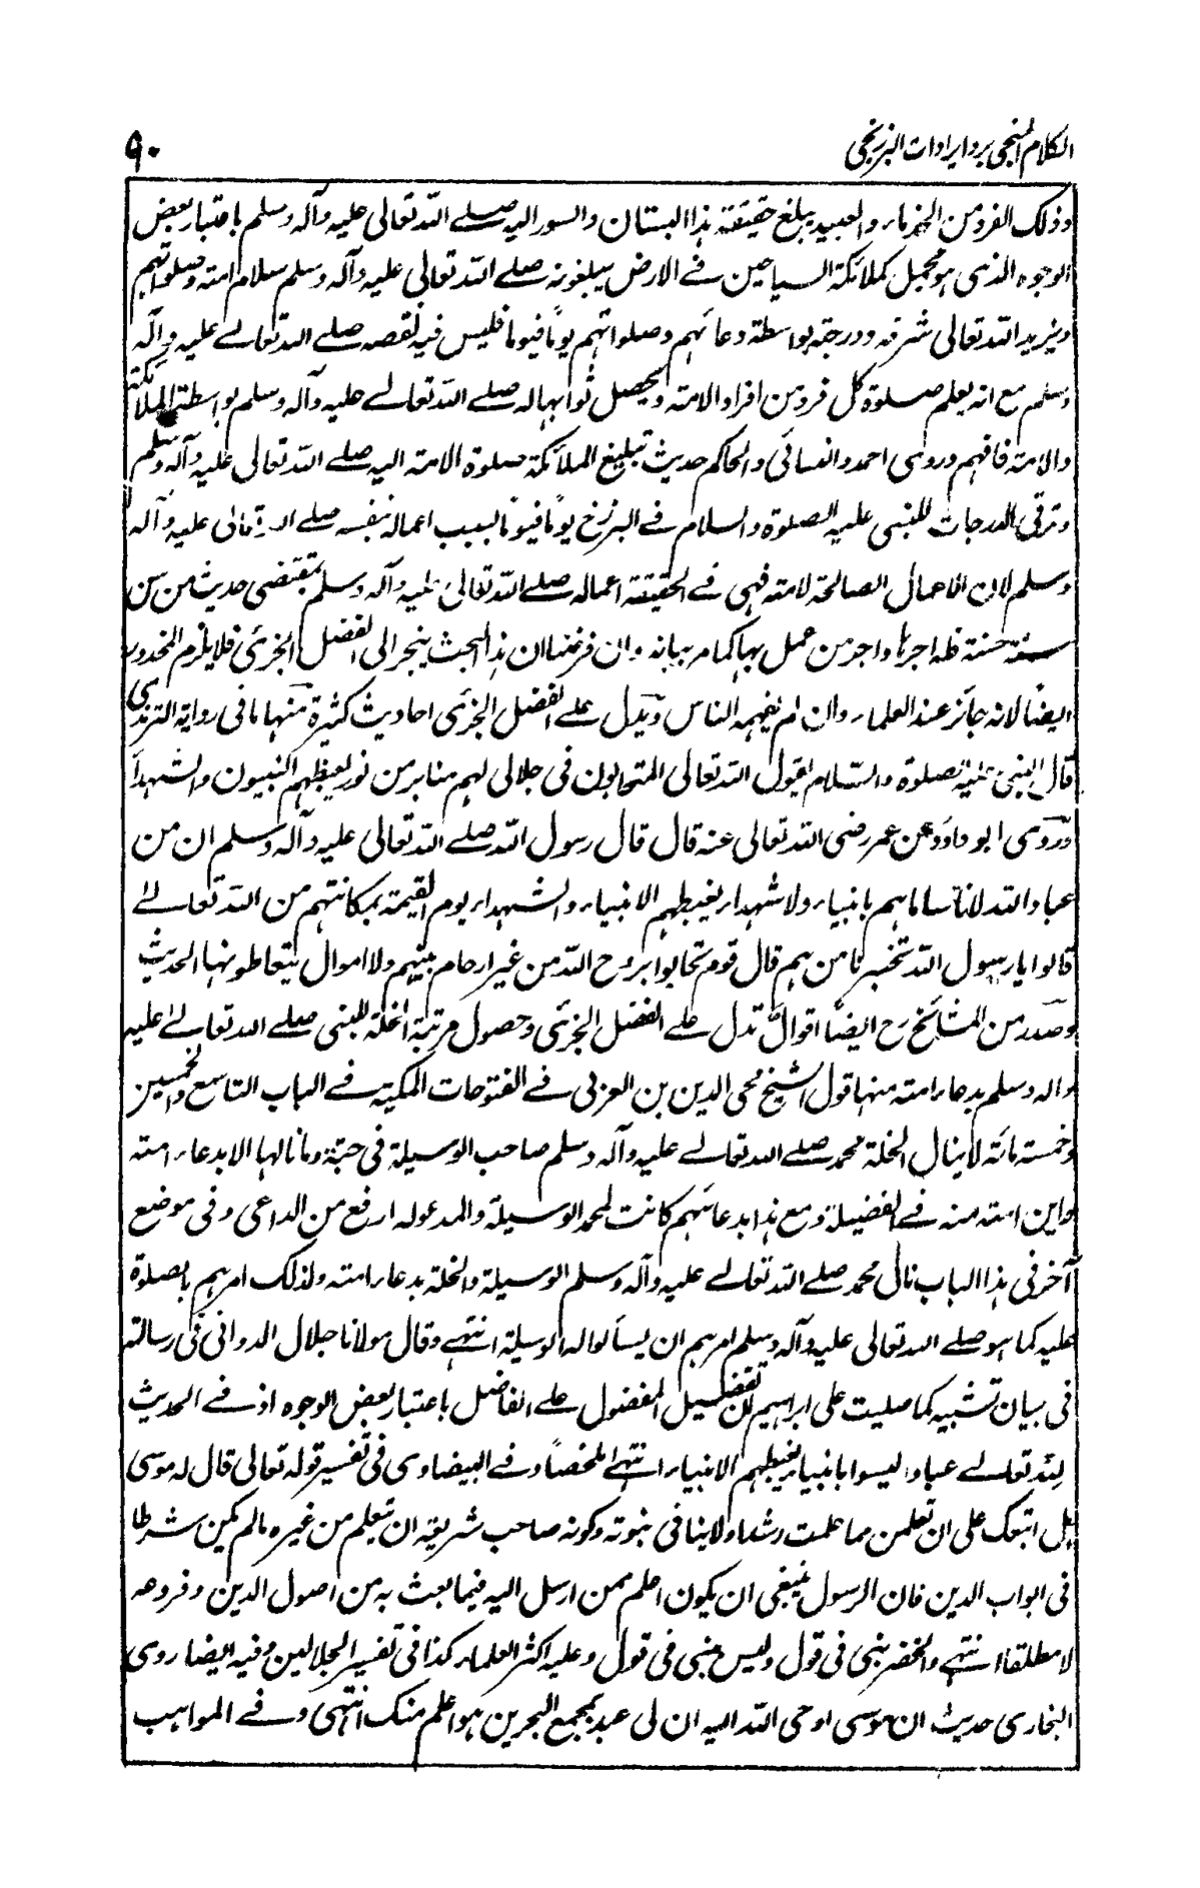 الكلام المنجى برد ايرادات البرزنجى
٩٠
وذلك الفرد من الخدماء والعبيد يبلغ حقيقة هذا البستان والسور اليه صلے الله تعالى عليه وآله وسلم باعتبار بعض
الوجوه الذى هو مجمل كملائكة السياحين فے الارض يبلغونه صلے الله تعالى عليه وآله وسلم سلام امته وصلواتهم
ويزيد الله تعالى شرفه ودرجته بواسطة دعائهم وصلواتهم يومًا فيومًا فليس فيه نقصه صلے الله تعالے عليه وآله
وسلم مع انه يعلم صلوة كل فرد من افراد الامة ويحصل ثوابها له صلے الله تعالے عليه وآله وسلم بواسطة الملائكة
والامة فافهم وروى احمد والنسائى والحاكم حديث تبليغ الملائكة صلوة الامة اليه صلے الله تعالى عليه وآله وسلم
وترقى الدرجات للنبى عليه الصلوة والسلام فے البرزخ يومًا فيومًا بسبب اعماله نفسه صلے الله تعالى عليه وآله
وسلم لان الاعمال الصالحة لامته فهى فے الحقيقة اعماله صلے الله تعالى عليه وآله وسلم بمقتضى حديث من سن
سنة حسنة فله اجرها واجر من عمل بها كما مر بيانه وان فرضنا ان هذا البحث ينجر الى الفضل الجزئى فلا يلزم المحذور
ايضًا لانه جائز عند العلماء وان لم يفهمه الناس ويدل علے الفضل الجزئى احاديث كثيرة منها ما فى رواية الترمذى
قال النبى عليه الصلوة والسلام يقول الله تعالى المتحابون فى جلالى لهم منابر من نور يغبطهم النبيون والشهدآ
وروى ابو داود عن عمر رضى الله تعالى عنه قال قال رسول الله صلے الله تعالى عليه وآله وسلم ان من
عباد الله لاناسا ما هم بانبياء ولا شهداء يغبطهم الانبياء والشهداء يوم القيمة بمكانتهم من الله تعالے
قالوا يا رسول الله تخبرنا من هم قال قوم تحابوا بروح الله من غير ارحام بينهم ولا اموال يتعاطونها الحديث
وصدر من المشائخ رح ايضًا اقوال تدل علے الفضل الجزئى وحصول مرتبة الخلة للنبى صلے الله تعالے عليه
واله وسلم بدعاء امته منها قول الشيخ محى الدين بن العربى فے الفتوحات المكية فے الباب التاسع والخمسين
وخمسة مائة لاينال الخلة محمد صلے الله تعالے عليه وآله وسلم صاحب الوسيلة فى جنة وما نالها الا بدعاء امته
واين امته منه فے الفضيلة ومع هذا بدعائهم كانت لمحمد الوسيلة والمدعو له ارفع من الداعى وفى موضع
آخر فى هذا الباب نال محمد صلے الله تعالے عليه وآله وسلم الوسيلة والخلة بدعاء امته ولذلك امرهم بالصلوة
عليه كما هو صلے الله تعالى عليه وآله وسلم امرهم ان يسألوا له الوسيلة انتهے وقال مولانا جلال الدوانى فى رسالته
فى بيان تشبيه كما صليت على ابراهيم ان تفضيل المفضول علے الفاضل باعتبار بعض الوجوه اذ فے الحديث
لله تعالے عباد ليسوا بانبياء يغبطهم الانبياء انتهے ملخصًا وفے البيضاوى فى تفسير قوله تعالى قال له موسى
هل اتبعك على ان تعلمن مما علمت رشدا ولاينافى نبوته وكونه صاحب شريعة ان يتعلم من غيره مالم يكن شرطا
فى ابواب الدين فان الرسول ينبغى ان يكون اعلم ممن ارسل اليه فيما بعث به من اصول الدين وفروعه
لا مطلقا انتهے والخضر نبى فى قول وليس بنبى فى قول وعليه اكثر العلماء كذا فى تفسير الجلالين وفيه ايضا روى
البخارى حديث ان موسى اوحى الله اليه ان لى عبد بمجمع البحرين هو اعلم منك انتهى وفے المواهب